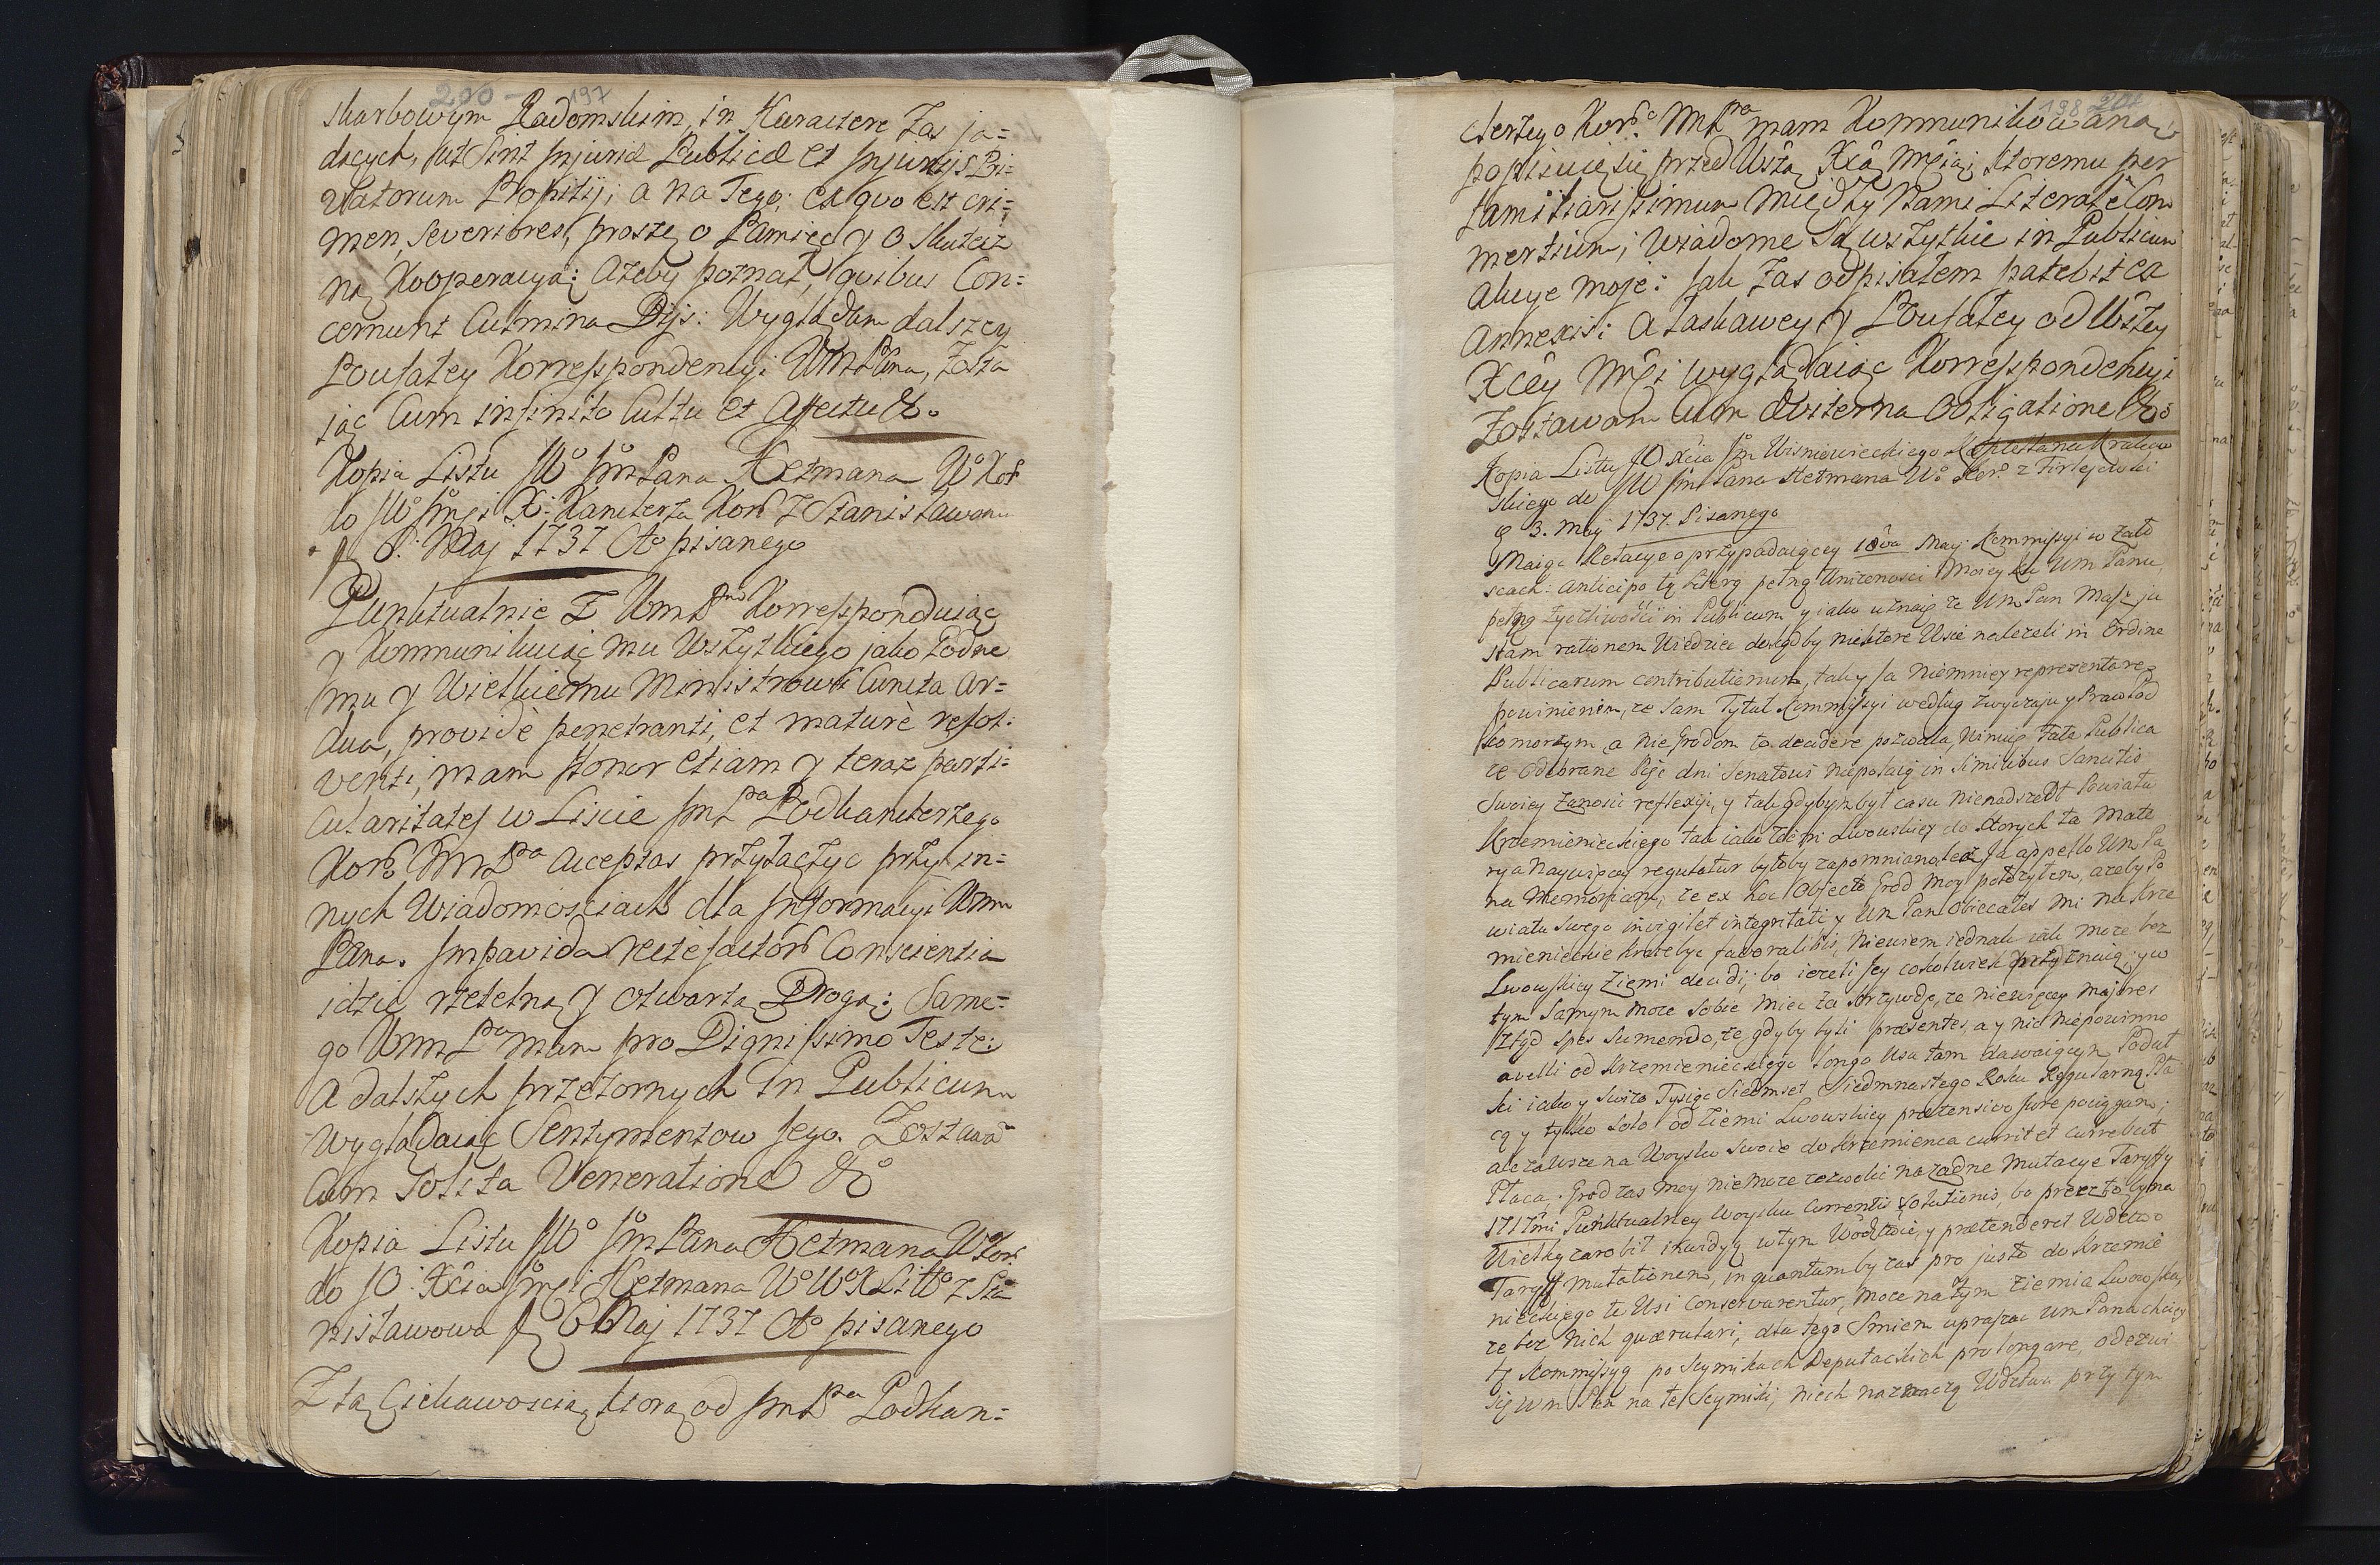 200 197
skarbowym Radomskim, in Karactere Zas ja=
dących, jut Sint Injuriæ Publicæ et Injurijs Pri=
vatorum Propitij; a na Tego; ex quo est cri=
men, Severiores, proszę o Pamięć y o Skutecz
ną Kooperacyą; azeby poznał, quibus Con=
cernunt Culmina Dijs: Wyglądam dalszey
Poufałey Korrespondencyi WmPana, Zosta
iąc Cum infinito Cultu et Affectu &.
Kopia Listu JWo Jm Pana Hetmana Wo Kor
do JWo Jmci X: Kanclerza Kor. Z Stanisławowa
6. Maj 1737 Ao pisanego
Punktualnie Z Wm Pnm Korrespondując
y Kommunikując mu Wszytkiego jako Godne
mu y Wielkiemu Ministrowi Cuncta Ar=
dua, providè penetranti, et maturè resol:
venti, mam Honor etiam y teraz parti=
cularitates w Liscie Jm Pa Podkanclerzego
Kor. Wm Pa acceptas przyłączyc przy in=
nych Wiadomosciach dla Informacyi Wm
Pana. Impavida rectè factor. Conscientia
idzie rzetelną y otwartą Drogą; Same=
go Wm Pa mam pro Dignissimo Teste;
A dalszych przezornych in Publicum
wyglądaiąc Sentymentow Jego. Zostawam
Cum Solita Veneratione &
Kopia Listu JWo Jm Pana Hetmana W Kor.
do JO. Xcia Jmci Hetmana Wo WoXLitto z Sta
nisławowa 6 Maj 1737 Ao pisanego
Z tą Ciekawoscią, ktorą od Jm Pa Podkan=
198 201
clerzego Kor. Wm Pna mam Kommunikowaną
popisuię się przed Wszą Xcą Mcią; ktoremu per
familiarissimum Między Nami Literatè Com
mertium; Wiadome są wszytkie in Publicum
Akcye moje: Jak Zas odpisałem patebit ex
Annexis: A łaskawey y Poufałey od Wszey
Xcey Mci wyglądaiąc Korrespondencyi
Zostawam Cum Aviterna Obligatione &
Kopia Listu JO Xcia Jm Wisniowieckiego Kasztelana Krakow
skiego do JW Jm Pana Hetmana Wo Kor. z Firlejowki
3. Maij 1737. Pisanego
Maiąc Relacye o przypadaiącey 18va Maij Kommissyi w Zało
scach: anticipo tą Literą pełną Unizonosci Moiey ku Wm Panu,
pełną Zyczliwosci in Publicum y iako uznaię ze Wm Pan Masz ju
stam rationem Wiedziec dokądby niektore Wsie nalezeli in Ordine
Publicarum contributionum, tak y Ja niemniey reprezentare
powinienem, ze Sam Tytuł Kommissyi według zwyczaju y Praw Pod
komorzym a nie Grodom to decidere pozwala, Nimię Fata Publica
ze odebrane Bije dni Senatoris niepolaią in Similibus Sancitis
Swoiey Zanosic reflexij, y tak gdybym był casu nienadszedł Powiatu
Krzemienieckiego tak iako Ziemi Lwowskiey do ktorych ta Mate
rya Naywięcey regułatur byłoby zapomniano, lecz Ja appello Wm Pa
na Memoriam, ze ex hoc Objecto Grod Moy połozyłem, azeby Po
wiatu Swego invigilet integritati y Wm Pan Obiecałes mi na Krze
mienieckie Krzeby favorabilis, Niewiem iednak iak moze bez
Lwowskiey Ziemi decidi, bo iezeli Jey cokolwiek przyznaią, y w
tym Samym Moze Sobie Miec Za Krzywdę, ze niewięcey majores
ztąd Spes Sumendo, ze gdyby byli præsentes, a y nic niepowinno
avelli od Krzemienieckiego longo Usu tam dawaiącym, Podat
ki iako y Swiezo Tysiąc Siedmset Siedmnastego Roku Regularną Pła
cą y tylko Solo od Ziemi Lwowskiey prætensivo Jure pociągano;
ale zawsze na Woysko Swoie do Krzemienca currit et currebat
Płaca. Grod zas moy nie moze zezwolic na zadne Mutacye Taryffy
1717mi Punktualney Woysku Currentis Solutionis, bo przezto byna
Wielką zarobił inwidyą wtym Wodztwie, y prætenderet Wdztwo
Taryff mutationem, in quantum by zas pro justo do Krzemie
nieckiego te Wsi conservarentur, moze na tym Ziemia Lwowska
ze bez Nich quærulari, dla tego Smiem upraszac Wm Pana chciey
tę Kommissyą po Seymikach Deputackich prolongare, odezwi
się Wm Pan na te Seymiki, niech naznaczą Wdztwa przy tym